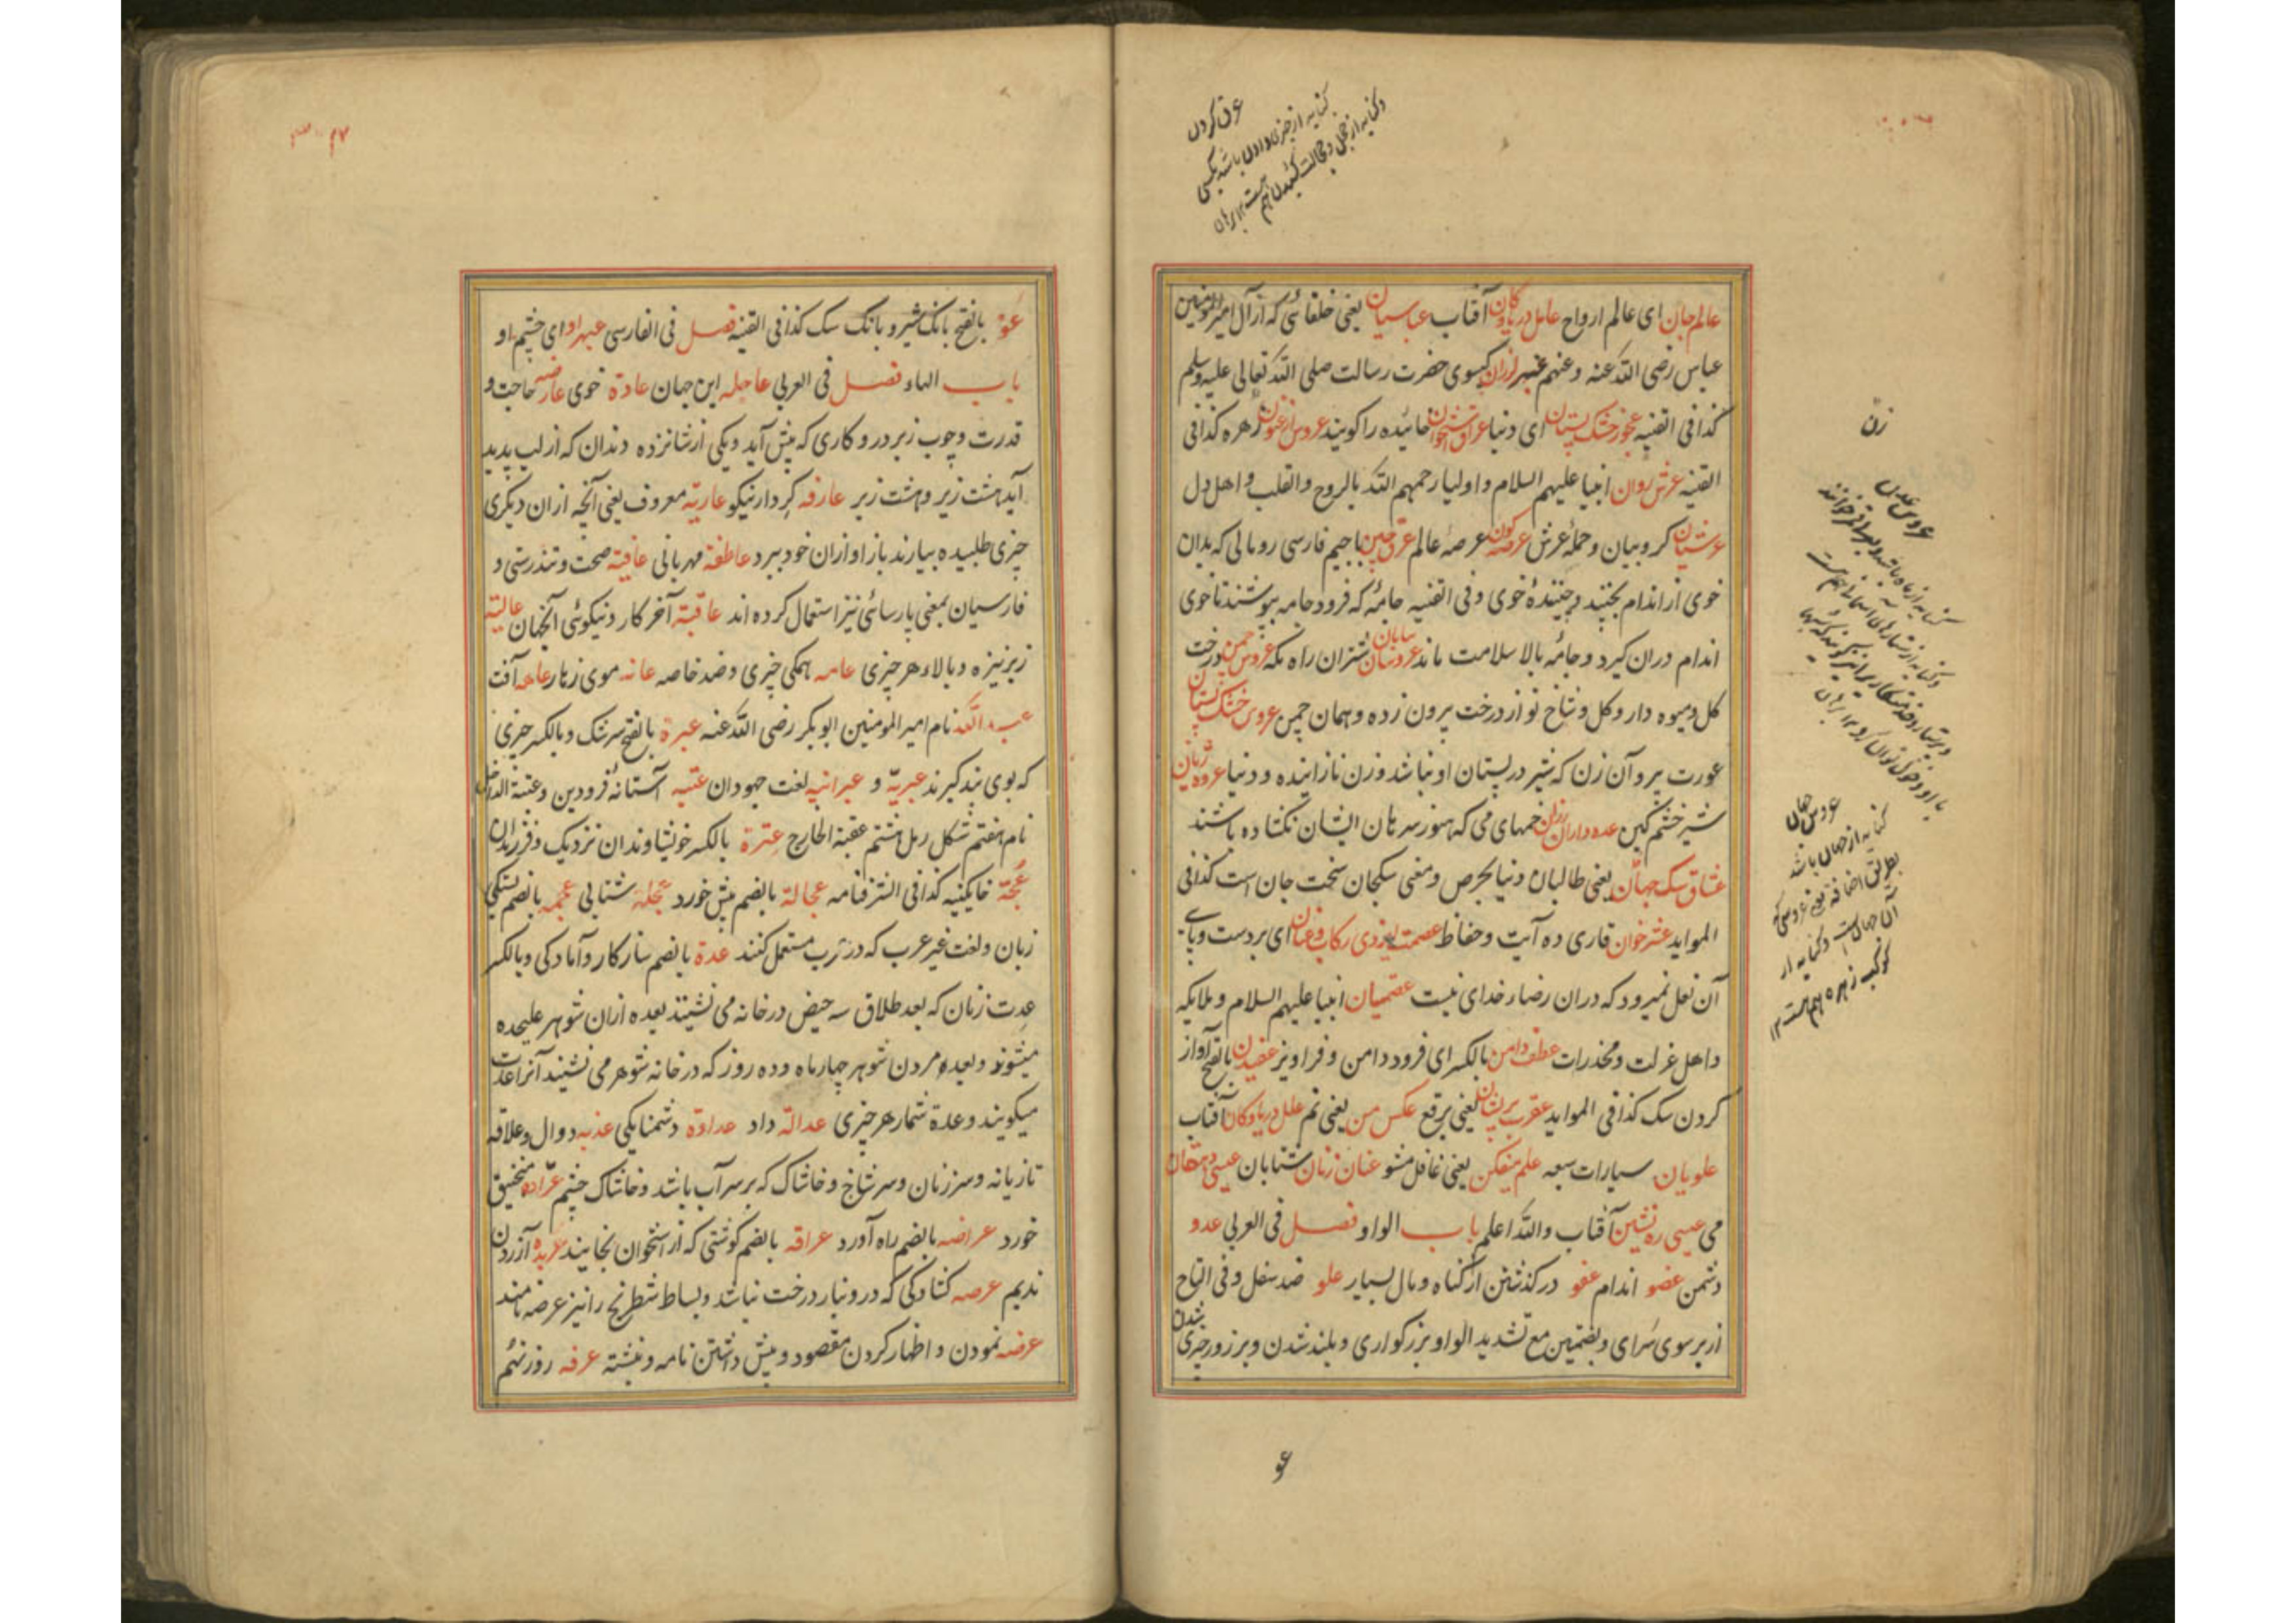 عرق کردن
کنایه از چیزی دادن باشد بکسی
و کنایه از خجل و خجالت کشیدن هم
هست ۱۲ برهان
عالم جان ای عالم ارواح عامل دریا و کان آفتاب عباسیان یعنی خلفائی که از آل امیرالمومنین
عباس رضی الله عنه وعنهم عنبر لرزان کیسوی حضرت رسالت صلی الله تعالی علیه وسلم
کذا فی القنیه عجوز خشک پستان ای دنیا خائیده را کویند عروس ارغنون زهره کذا فی
القنیه عرش روان انبیا علیهم السلام و اولیا رحمهم الله بالروح والقلب و اهل دل
عرشیان کروبیان و حمله عرش عرصه کون عرصه عالم عرق چین با جیم فارسی رومالی که بدان
خوی از اندام بچنید و چننده خوی و فی القنیه جامه که فرود جامه بپوشند تا خوی
اندام دران کیرد و جامه بالا سلامت ماند عروسان بیابان شتران راه مکه عروس چمن درخت
کل و میوه دار و کل و شاخ نو از درخت برون زده و همان چمن عروس خشک پستان
عورت پیر و آن زن که شیر در پستان او نباشد و زن نازاینده و دنیا
شیر خشم کین عده داران رزان خمهای می که هنوز سرهان ایشان نکشاده باشند
عشاق سک جهان یعنی طالبان دنیا بحرص و معنی سکجان سخت جان است کذا فی
الموايد عشر خوان قاری ده آیت و حفاظ عصمت ایزدی رکاب و عنان ای بر دست و پای
آن فعل نمیرود که دران رضاء خدای نیست عصمیان انبیا علیهم السلام و ملایکه
و اهل عزلت و مخدرات عطف دامن بالکسر ای فرود دامن و فراویز بالفتح آواز
کردن سک کذا فی الموايد یعنی برقع عکس من یعنی نم علل دریا و کان آفتاب
علویان سیارات سبعه علم میفکن یعنی غافل مشو عنان زنان شتابان عیسی دهقان
می عیسی ره نشین آفتاب والله اعلم باب الواو فصل فی العربی عدو
دشمن عضو اندام عفو درکذشتن از کناه و مال بسیار علو ضد سفل و فی التاج
از بر سوی سرای و بضمتین مع تشدید الواو بزرکواری و بلند شدن و بر زور چیزی شدن
زن
عروس عدن
عروس جهان
کنایه از جهان باشد
بطریق اضافه یعنی عروسی که
آن جهان است و کنایه از
کوکب زهره هم هست ۱۲
عو
عو بالفتح بانک شیر و بانک سک کذا فی القنیه فصل فی الفارسی عبهر او ای چشم او
باب الهاء فصل فی العربی عاجله این جهان عادة خوی عارضه حاجت و
قدرت و چوب زبر در و کاری که پیش آید و یکی از شانزده دندان که از لب پدید
آید هشت زیر و هشت زبر عارفه کردار نیکو عاریّة معروف یعنی آنچه از ان دیکری
چیزی طلبیده بیارند باز او ازان خود ببرد عاطفة مهربانی عافیة صحت و تندرستی و
فارسیان بمعنی پارسائی نیز استعمال کرده اند عاقبة آخر کار و نیکوئی آنجهان عالیة
زبر نیزه و بالاء هر چیزی عامه همکی چیزی و ضد خاصه عانه موی زهار عاهه آفت
عبد الله نام امیر المومنین ابوبکر رضی الله عنه عبرة بالفتح سرشک و بالکسر چیزی
که بوی پند کیرند عبریّة و عبرانیه لغت جهودان عتبه آستانه فرودین و عتبة الداخل
نام هفتم شکل رمل هشتم عقبة الخارج عترة بالکسر خویشاوندان نزدیک و فرزندان
عجّة خایکینه کذا فی الشرفنامه عجالة بالضم پیش خورد عجله شتابی عجمه بالضم بستکی
زبان و لغت غیر عرب که در عرب مستعمل کنند عدة بالضم ساز کار و آمادکی و بالکسر
عدت زنان که بعد طلاق سه حیض در خانه می نشینند بعده ازان شوهر علیحده
میشوند و بعده مردن شوهر چهار ماه و ده روز که در خانه شوهر می نشینند آنرا عدت
میکویند و عدة شمار هر چیزی عدالة داد عداوة دشمنایکی عذبه دوال و علاقه
تازیانه و سر زنان و سر شاخ و خاشاک که بر سر آب باشد و خاشاک چشم عرّاده منجنیق
خورد عراضه بالضم راه آورد عراقه بالضم کوشتی که از استخوان بخایند عربده آزردن
ندیم عرصه کشادکی که در و نبار درخت نباشد و بساط شطرنج را نیز عرصه نامند
عرضه نمودن و اظهار کردن مقصود و پیش داشتن نامه و نبشته عرفه روز نهم